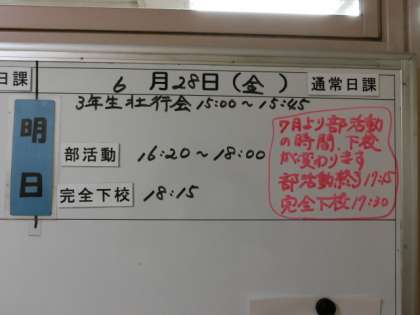 日課
6月28日(金)
通常日課
3年生壮行会 15:00~15:45
明日
部活動 16:20~18:00
完全下校 18:15
7月より部活動
の時間、下校
が変わります
部活動終了19:15
完全下校19:30